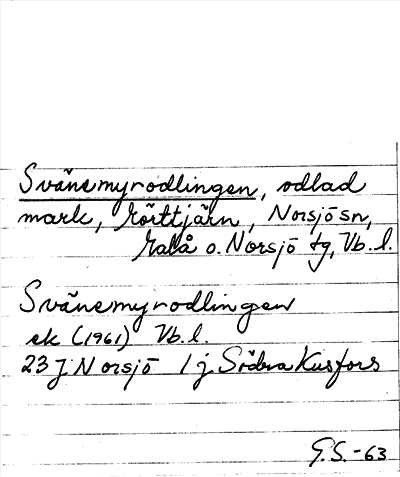 Svänsmyrodlingen, odlad
mark, Rörttjärn, Norsjö sn,
Malå o. Norsjö tg, Vb. l.
Svänsmyrodlingen
ek (1961) Vb. l.
23 J Norsjö 1 j Södra Kusfors
G.S.-63